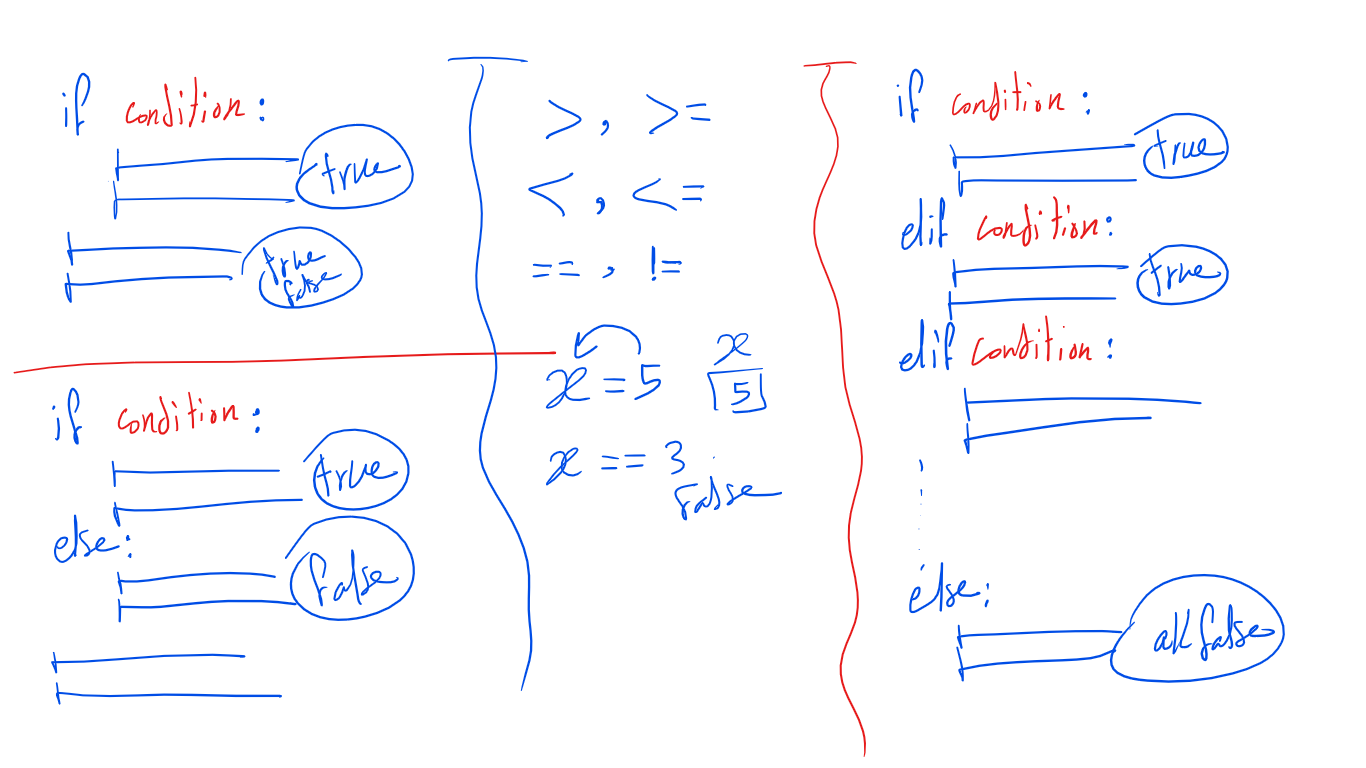 if condition:
true
true
false
if condition:
true
else:
false
>, >=
<, <=
==, !=
x = 5
x
5
x == 3
False
if condition:
true
elif condition:
true
elif condition:
else:
all false